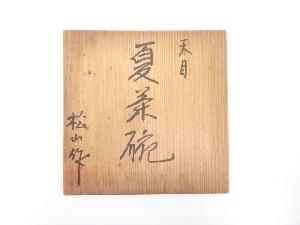 天目
夏茶碗
松山作